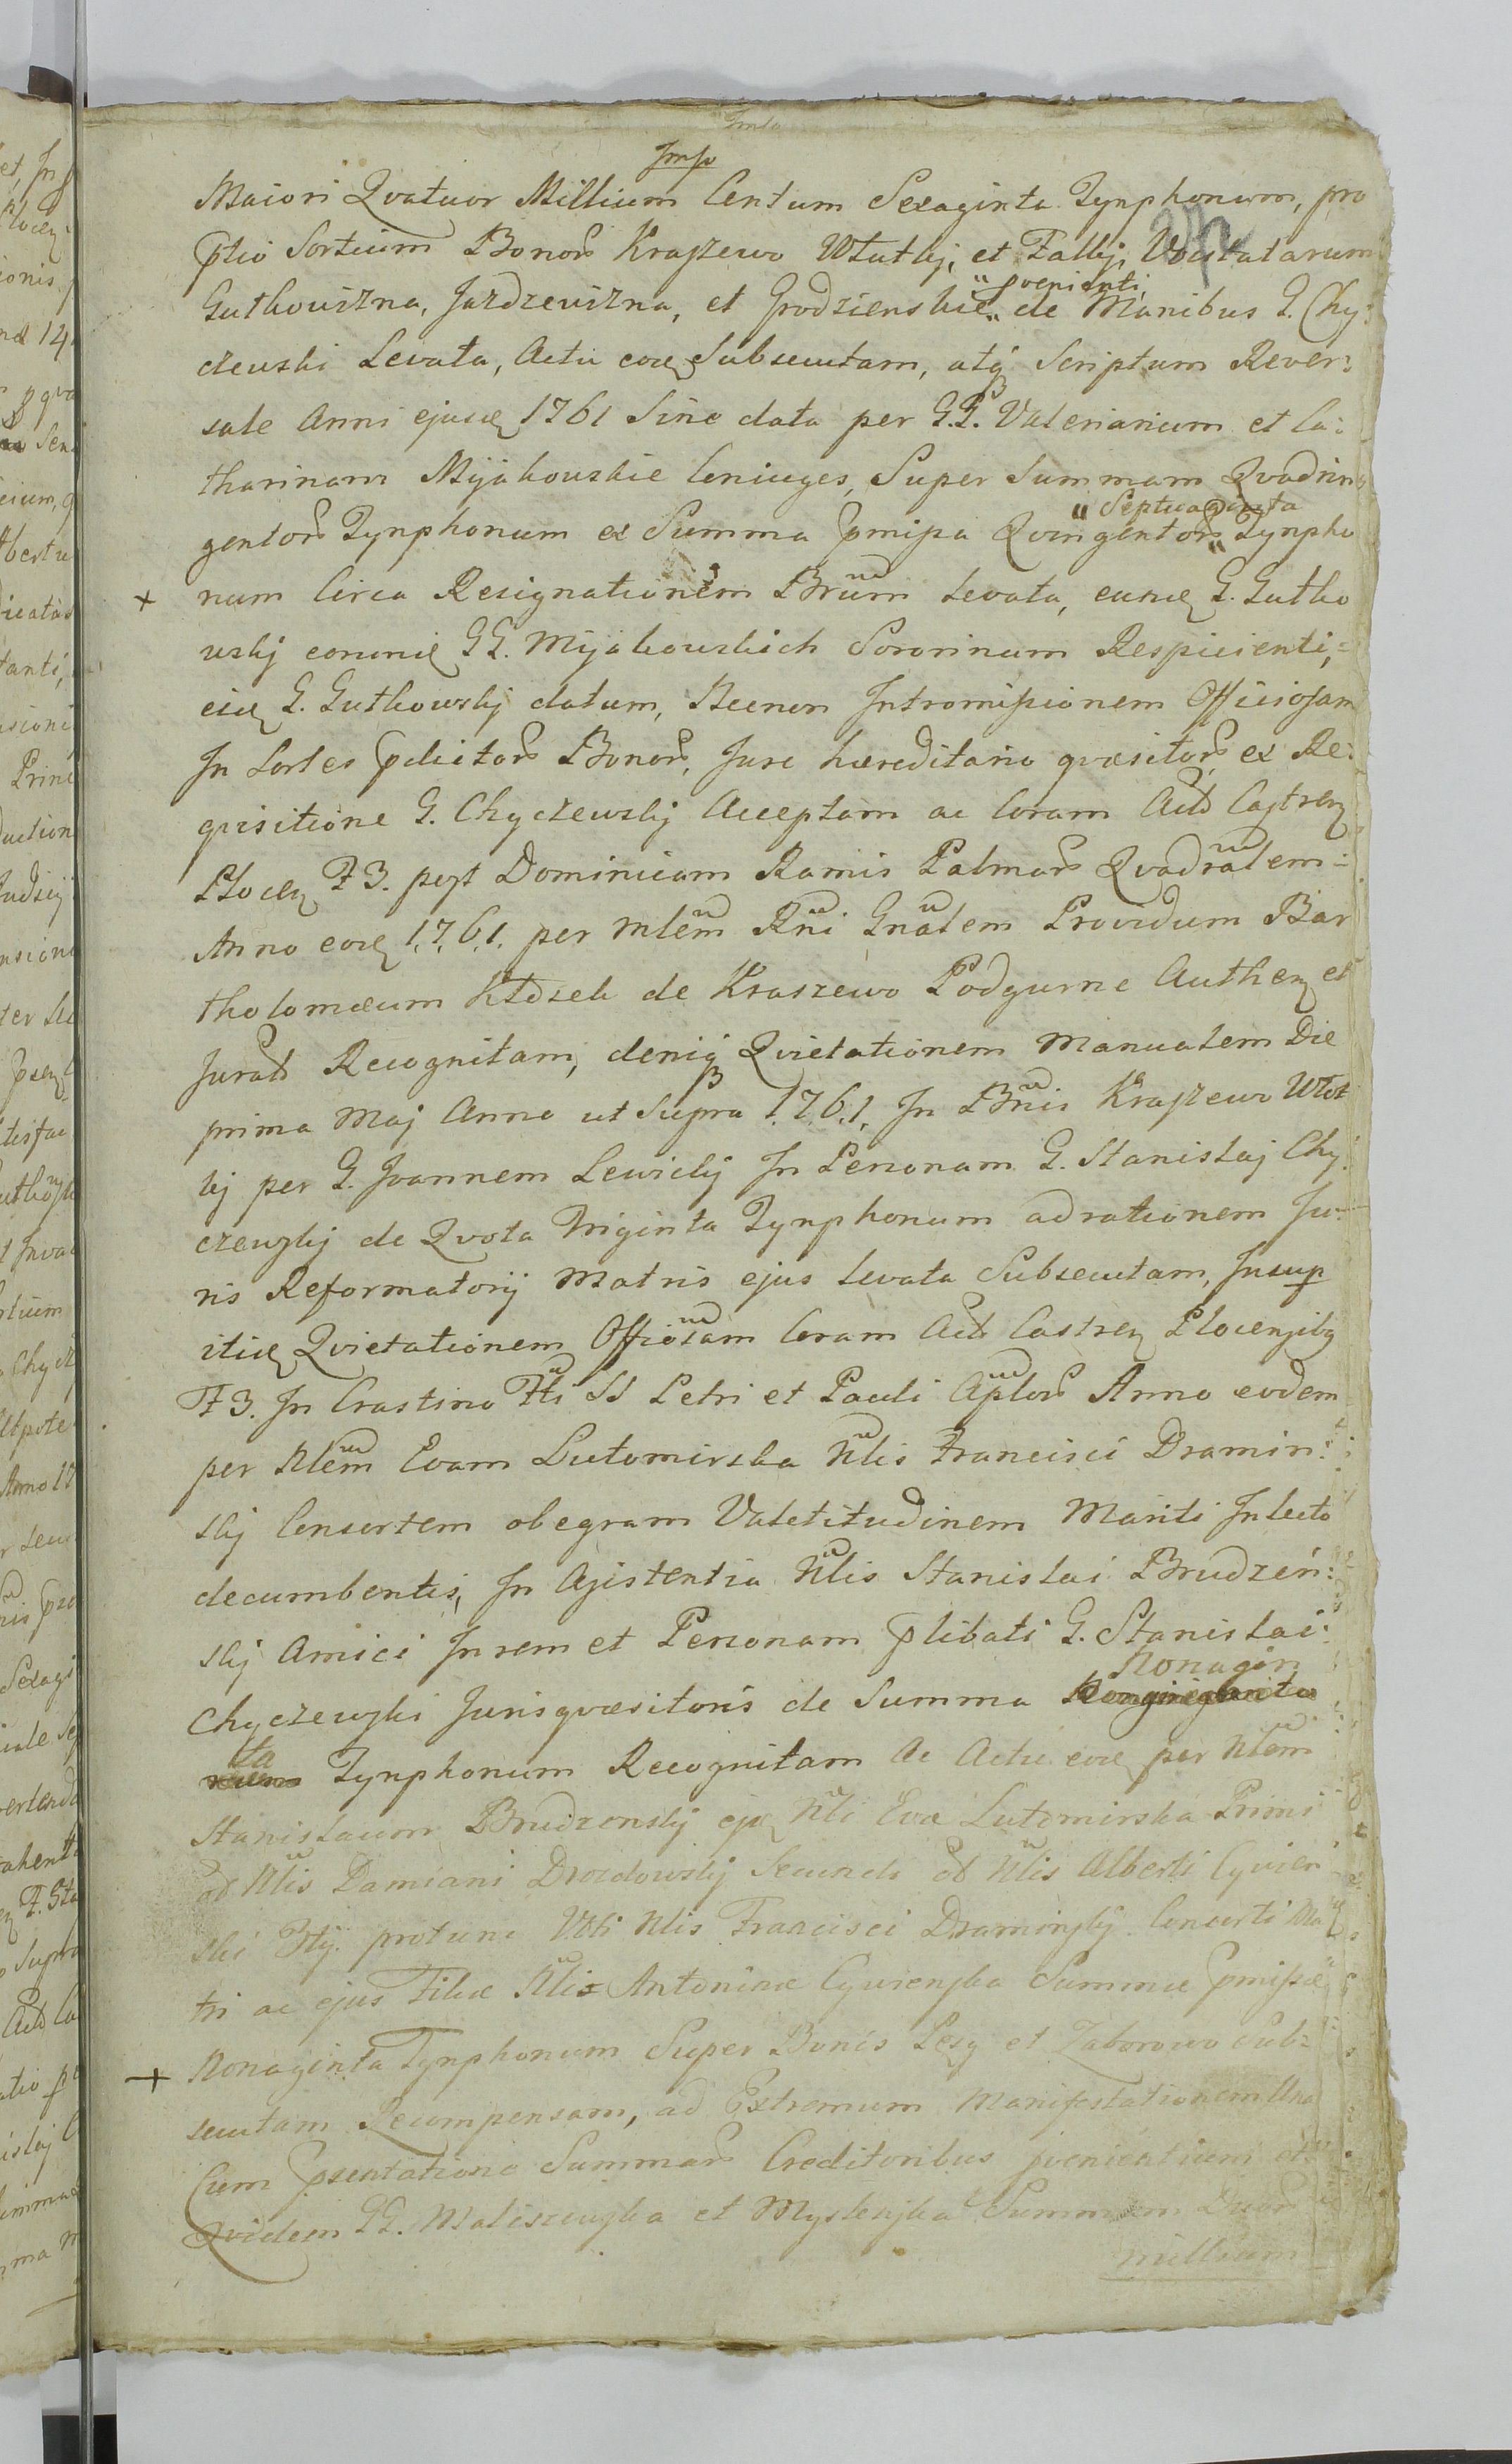 Imso
Maiori Qvatuor Millium Centum Sexaginta Tynphonum, pro
ptio Sortium Bonorˢ Kraszewo Wtutky, et Falky, Vocitatarum
Gutkowizna, Jazdzewizna, et Grodzienskie „ pvenienti „ de Manibus G. Chy:
czewski Levata, Actu eoꝗ Subsecutam, atq Scriptum Rever:
sale Anni ejusꝗ 1761 Sine data per G.G. Valerianum et Ca:
tharinam Myakowskie Coniuges, Super Summam Qvadrin
gentorˢ Tynphonum ex Summa pmissa Qvingentorˢ „ Septuaginta „ Tynpho
+ num Circa Resignationem Bnrum Levata, eunꝗ G. Gutko
wskj eorunꝗ GG. Myakowskich Sororinum Respicienti,
eiꝗ G. Gutkowskj datum, Necnon Intromissionem Officiosam
In Sortes pdictorˢ Bonorˢ, Jure hæreditario qvæsitorˢ ex Re:
qvisitione G. Chyczewskj Acceptam ac Coram Actˢ Castrenˢ
Plocenˢ F 3. post Dominicam Ramis Palmarˢ Qvadralem
Anno eoꝗ 1761. per Mlem Rni Gnalem Providum Bar
tholomæum de Kraszewo Podgurne Authenˢ et
Juratˢ Recognitam, deniq Qvietationem Manualem Die
prima Maj Anno ut Supra 1761, In Bnis Kraszewo Wtot
kj per G. Joannem Lewickj In Personam G. Stanislaj Chy:
czewskj de Qvota Triginta Tynphonum ad rationem Ju:
ris Reformatorij Matris ejus Levata Subsecutam, Insup
itiꝗ Qvietationem Offiosam Coram Actˢ Castrenˢ Plocensibꝗ
F 3. In Crastino Fti SS Petri et Pauli Aplorˢ Anno eodem
per Nlem Evam Lutomirska Nlis Francisci Dramin:
skj Consortem ob egram Valetitudinem Mariti In lecto
decumbentis, In Assistentia Nlis Stanislai Brudzeń:
skj Amici In rem et Personam plibati G. Stanislai
Chyczewski Jurisqvæsitoris de Summa Nonagin
ta Tynphonum Recognitam Ac Actu eoꝗ per Nlem
Stanislaum Brudzenskj ejꝗ Nli Evæ Lutomirska Primi
ac Nlis Damiani Drozdowskj Secundi et Nlis Alberti Cywien
ski Ttij. pro tunc Vtti Nlis Francisci Draminskj Consorti Ma
tri ac ejus Filiæ Nlis Antoninæ Cywienska Summæ pmissæ
+ Nonaginta Tynphonum Super Bonis Lesz et Zaborowo Sub:
secutam Recompensam, ad Extremum Manifestationem Una
Cum psentatione Summarˢ Creditoribus pvenientium et
Qvidem GG. Maliszewska et Myslenska Summam Duorˢ
millium